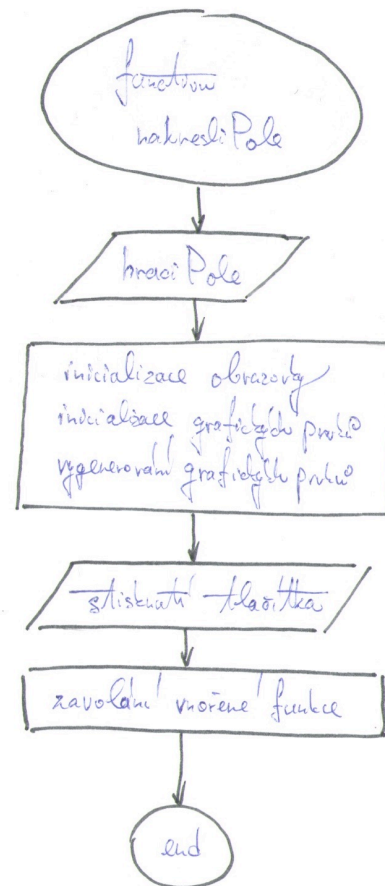 function
nakresliPole
hraciPole
inicializace obrazovky
inicializace grafických prvků
vygenerování grafických prvků
stisknutí tlačítka
zavolání vnořené funkce
end